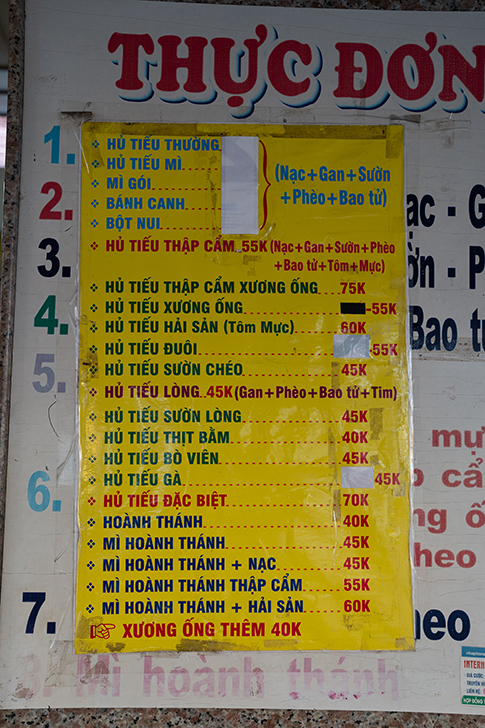 THỰC ĐƠN
1.
2.
3.
4.
5.
6.
7.
❖ HỦ TIẾU THƯỜNG
❖ HỦ TIẾU MÌ
❖ MÌ GÓI
❖ BÁNH CANH
❖ BỘT NUI
(Nạc+Gan+Sườn
+Phèo+Bao tử)
❖ HỦ TIẾU THẬP CẨM 55K (Nạc+Gan+Sườn+Phèo
+Bao tử+Tôm+Mực)
❖ HỦ TIẾU THẬP CẨM XƯƠNG ỐNG....75K
❖ HỦ TIẾU XƯƠNG ỐNG -55K
❖ HỦ TIẾU HẢI SẢN (Tôm Mực) 60K
❖ HỦ TIẾU ĐUÔI -55K
❖ HỦ TIẾU SƯỜN CHÉO 45K
❖ HỦ TIẾU LÒNG..45K (Gan+Phèo+Bao tử+Tim)
❖ HỦ TIẾU SƯỜN LÒNG 45K
❖ HỦ TIẾU THỊT BẰM 40K
❖ HỦ TIẾU BÒ VIÊN 45K
❖ HỦ TIẾU GÀ 45K
❖ HỦ TIẾU ĐẶC BIỆT 70K
❖ HOÀNH THÁNH 40K
❖ MÌ HOÀNH THÁNH 45K
❖ MÌ HOÀNH THÁNH + NẠC 45K
❖ MÌ HOÀNH THÁNH THẬP CẨM 55K
❖ MÌ HOÀNH THÁNH + HẢI SẢN 60K
XƯƠNG ỐNG THÊM 40K
ạc - G
ờn - P
Bao tử
mự
o cẩ
ng ố
heo
heo
8. Mì hoành thánh
INTERN